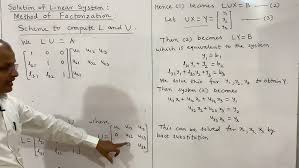 Solution of Linear System:
Method of Factorization
Scheme to compute L and U.
We LU = A
1 0 0
l₂₁ 1 0
l₃₁
u₁₁ u₁₂ u₁₃
L =
0 u₂₂ u₂₃
Hence (1) becomes LUX = B — (2)
Let UX = Y = [y₁ y₂ y₃] — (3)
Then (2) becomes LY = B
which is equivalent to the system
y₁ = b₁
l₂₁y₁ + y₂ = b₂
l₃₁y₁ + l₃₂y₂ + y₃ = b₃
We solve this for y₁, y₂, y₃ to obtain Y.
Then system (3) becomes
u₁₁x₁ + u₁₂x₂ + u₁₃x₃ = y₁
u₂₂x₂ + u₂₃x₃ = y₂
u₃₃x₃ = y₃
This can be solved for x₁, x₂, x₃ by
back substitution